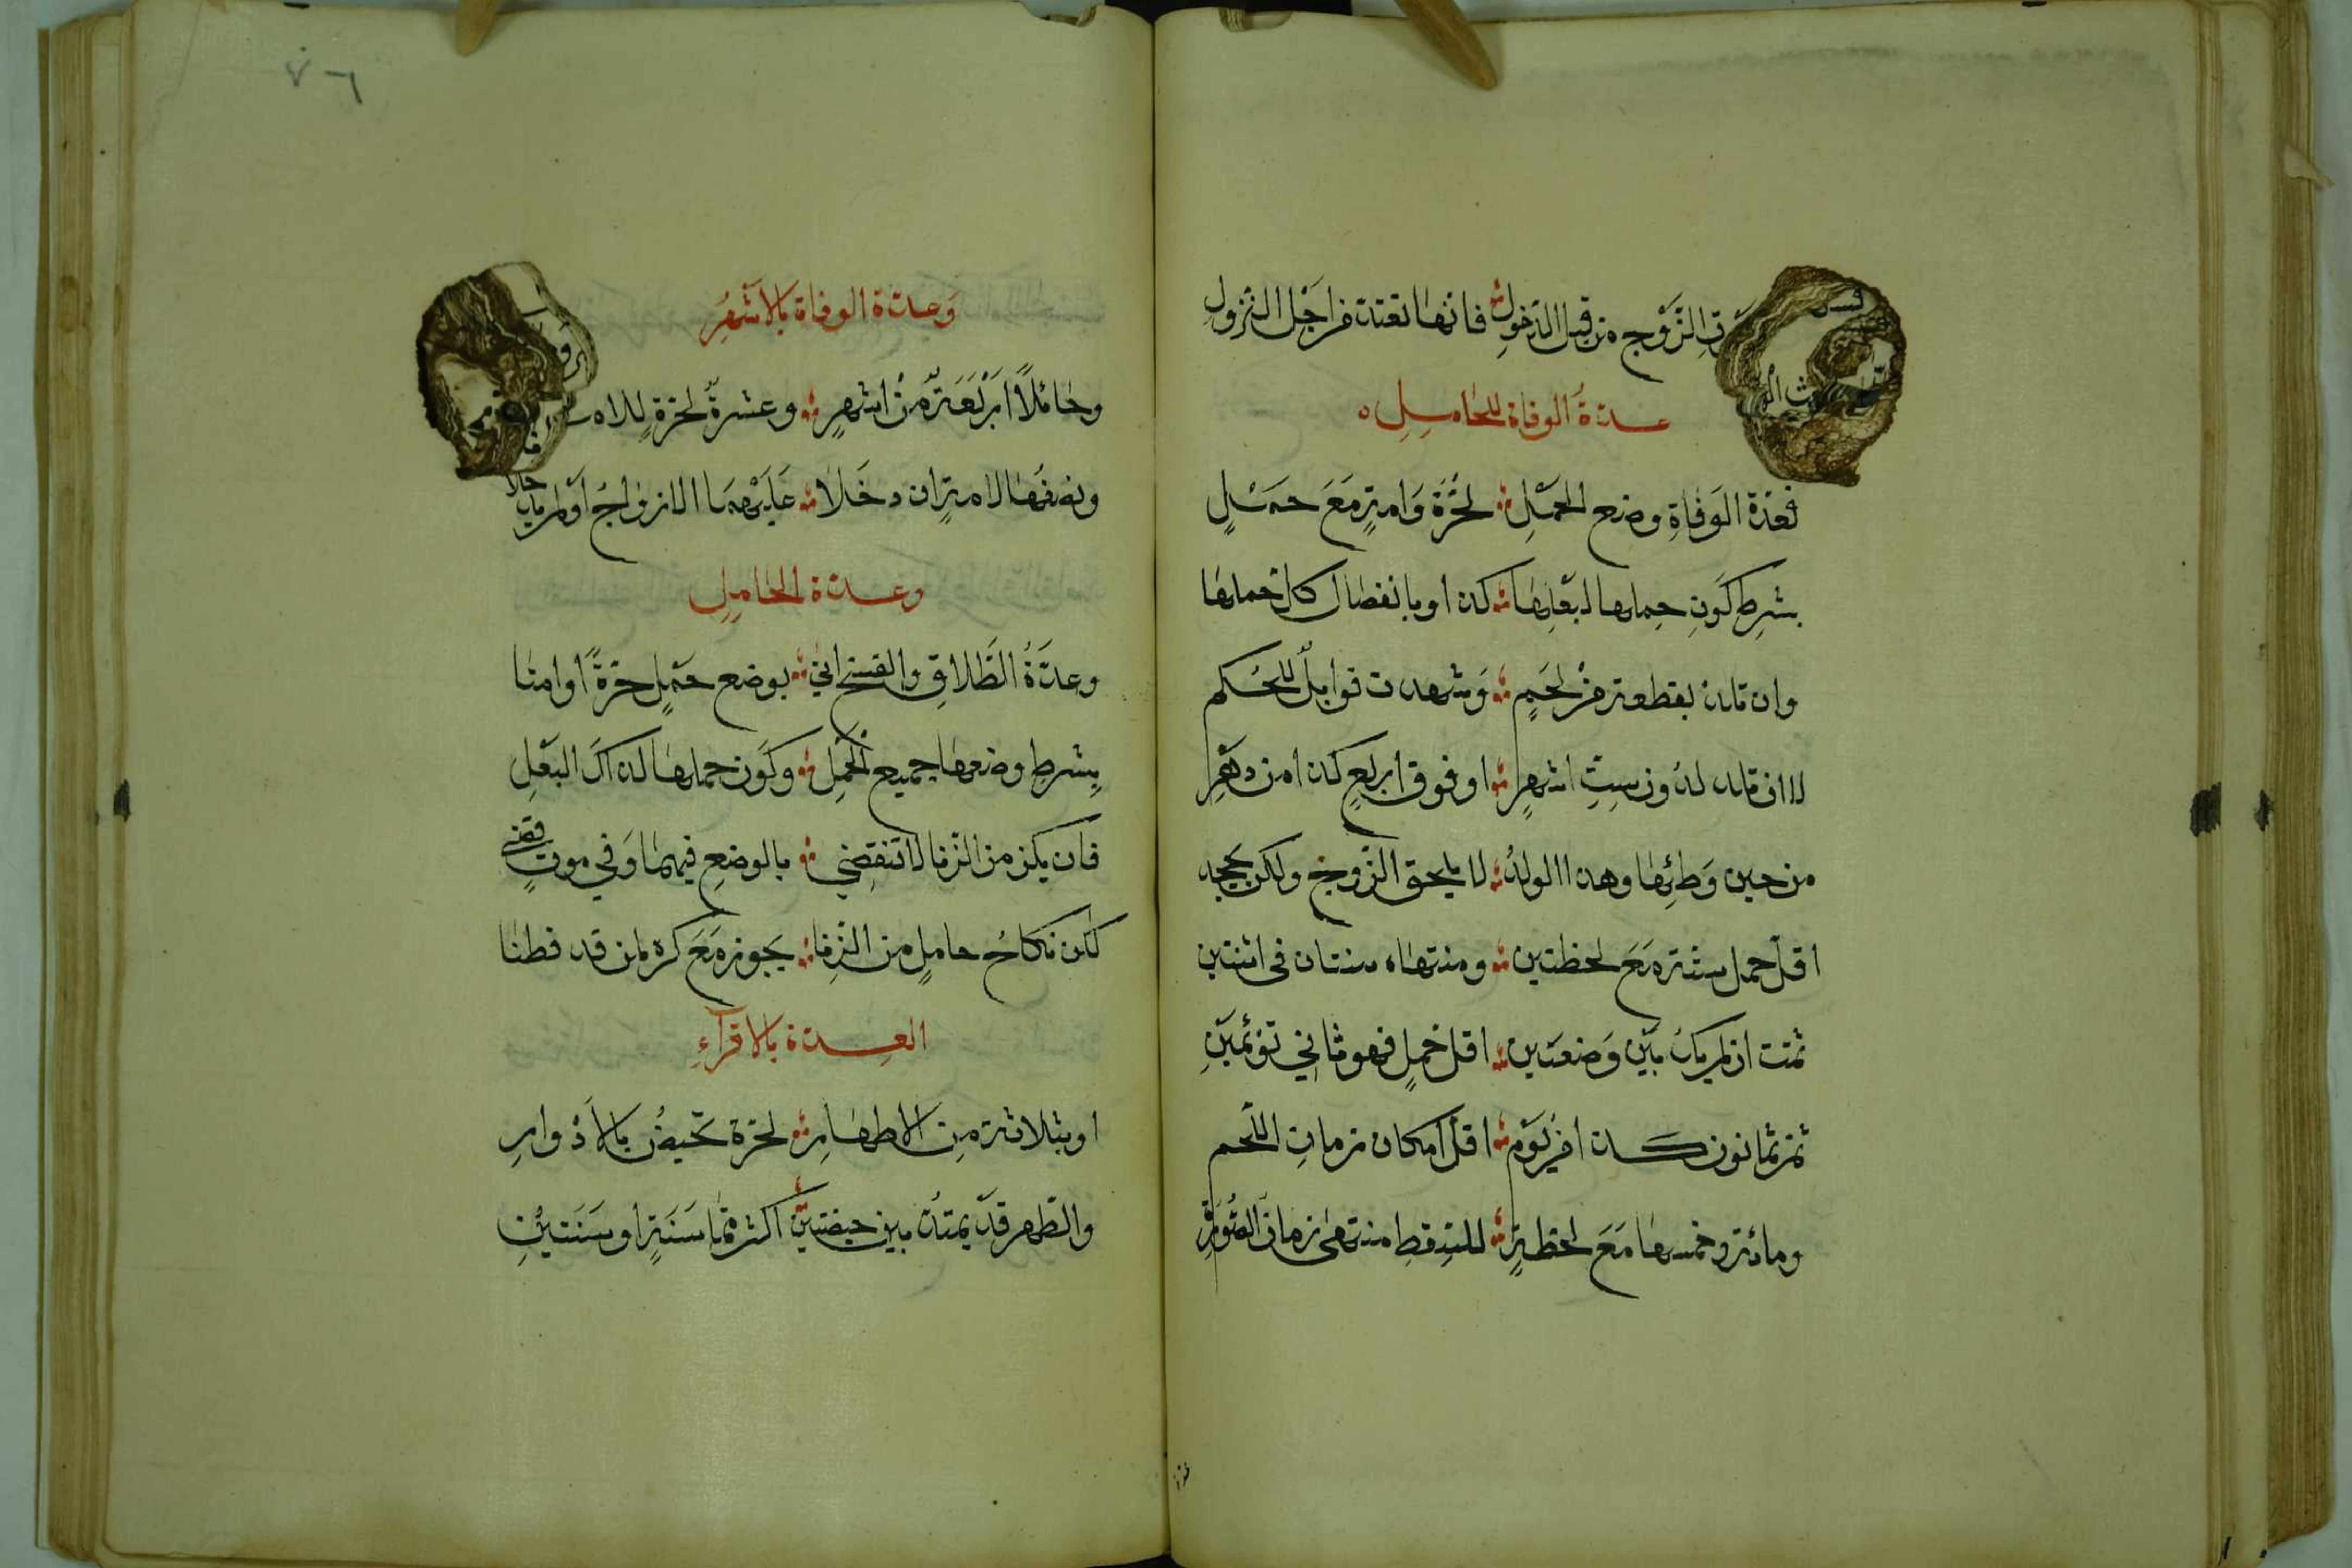 الزَّوْج من قبل الدخولِ فانها تعتد من اجل النزولِ
عدةُ الوفاة للحاملِ
فعدة الوَفاةِ وضع الحملِ لحُرَّة وَامةٍ مَعَ حملٍ
بشرطِ كَونِ حملها لبَعْلِها كذا وبانفصال كل حملها
وان تلد بقطعة من لحمٍ وَشهدت قوابلٌ للحكم
لا ان تلد لدون ستِّ اشهرٍ او فوق اربعٍ كذا من دهرِ
من حين وَطئِها وهذا الولدُ لا يلحق الزوج ولكن يجحد
اقل حمل ستة مَعَ لحظتين ومنتهاه سنتان في اثنتين
ثمت ان لم يك بين وَضعَتين اقل حملٍ فهو ثاني تَوْئمَيْنِ
ثم ثمانون كذا في يَوْم اقل امكان زمانِ اللحم
ومائة وخمسها مَعَ لحظةٍ للسقطِ منتهى زمان الصُّورَةِ
٧٦
وَعدة الوفاة بالاَشْهُرِ
وحائلاً اَرْبَعَةٌ من اشهرٍ وعشرةٌ لحرةٍ
ونصفها لامةٍ ان دخَلا عَلَيْهما الازواج اَو لم يك
وعدة الحاملِ
وعدَّةُ الطَّلاقِ والفسخ اتى بوضع حَمْلٍ حرةً او امتا
بِشرطِ وضعها جميع الحَمْلِ وكَون حملها لذاك البَعْلِ
فان يكن من الزنا لا تنقضي بالوضعِ فيهما وَفي موتٍ قضي
لكن نكاحُ حاملٍ من الزِنا يجوز مَعَ كره لمن قد فطنا
العدة بالاقرآءِ
او بثلاثة مِن الاطهارِ لحرة تحيضُ بالاَدْوارِ
والطهر قد يمتدُ بين حيضتين اكثر مما سَنَةٍ او سَنَتَيْنِ